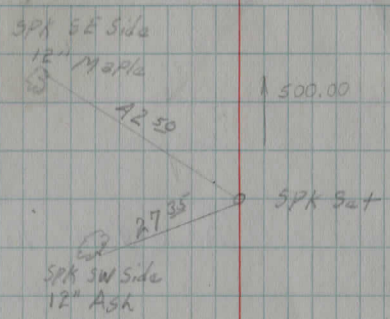 SPK SE Side
12" Maple
500.00
42 50
SPK Set
27 35
SPK SW Side
12" Ash